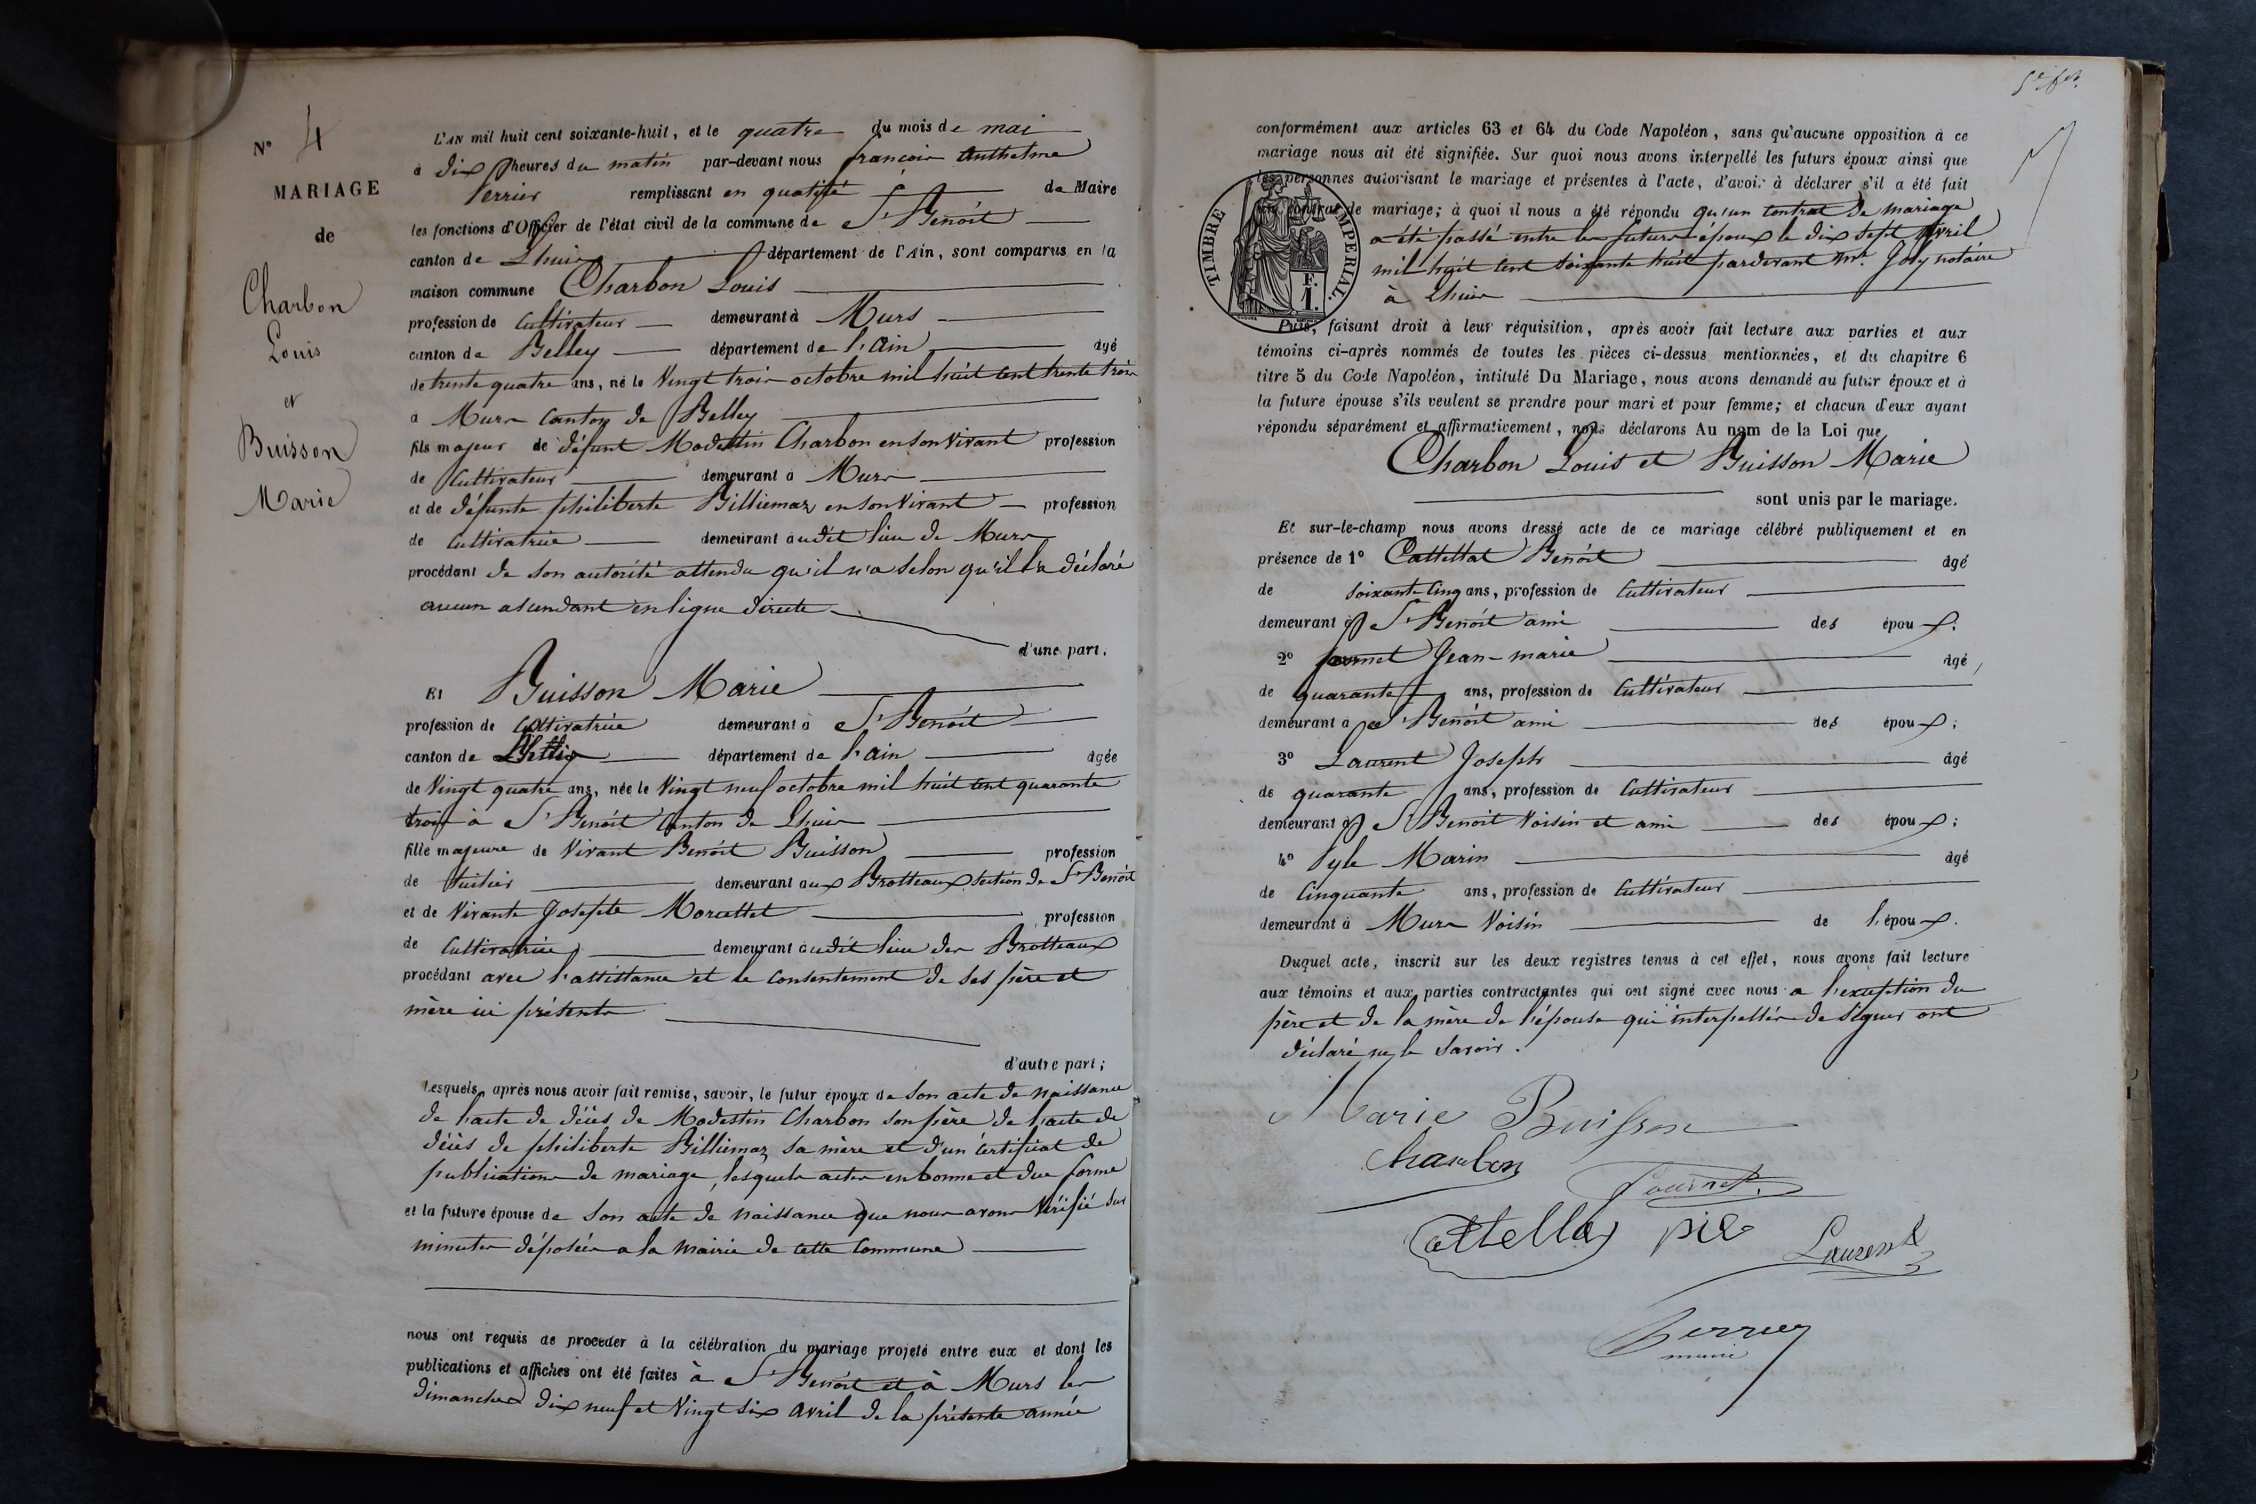 N° 4
MARIAGE
de
Charbon
Louis
et
Buisson
Marie
L'AN mil huit cent soixante-huit, et le quatre du mois de mai
à dix heures du matin par-devant nous françois Anthelme
Perrier remplissant en qualité de Maire
les fonctions d'Officier de l'état civil de la commune de St Benoît
canton de Lhuis département de l'Ain, sont comparus en la
maison commune Charbon Louis
profession de Cultivateur demeurant à Murs
canton de Belley département de l'ain âgé
de trente quatre ans, né le Vingt trois octobre mil huit cent trente trois
à Murs Canton de Belley
fils majeur de défunt Modestin Charbon en son vivant profession
de Cultivateur demeurant à Murs
et de défunte philiberte Billiemaz en son vivant profession
de Cultivatrice demeurant audit lieu de Murs
procédant de son autorité attendu qu'il n'a selon qu'il l'a déclaré
aucun ascendant en ligne directe
d'une part.
Et Buisson Marie
profession de Cultivatrice demeurant à St Benoît
canton de département de l'ain âgée
de Vingt quatre ans, née le Vingt neuf octobre mil huit cent quarante
trois à St Benoît Canton de Lhuis
fille majeure de Vivant Benoît Buisson profession
de tuilier demeurant aux Brotteaux section de St Benoît
et de Vivante Josephte Morettet profession
de Cultivatrice demeurant audit lieu des Brotteaux
procédant avec l'assistance et le consentement de ses père et
mère ici présents
d'autre part;
Lesquels, après nous avoir fait remise, savoir, le futur époux de son acte de naissance
de l'acte de décès de Modestin Charbon son père de l'acte de
décès de philiberte Billiemaz sa mère et d'un certificat de
publications de mariage, lesquels actes en bonne et due forme
et la future épouse de son acte de naissance que nous avons Vérifié sur
minutes déposées à la mairie de cette commune
nous ont requis de procéder à la célébration du mariage projeté entre eux et dont les
publications et affiches ont été faites à St Benoît et à Murs les
dimanches dix neuf et Vingt six avril de la présente année
conformément aux articles 63 et 64 du Code Napoléon, sans qu'aucune opposition à ce
mariage nous ait été signifiée. Sur quoi nous avons interpellé les futurs époux ainsi que
les personnes autorisant le mariage et présentes à l'acte, d'avoir à déclarer s'il a été fait
un contrat de mariage; à quoi il nous a été répondu qu'un contrat de mariage
a été passé entre les futurs époux le dix sept avril
mil huit cent soixante huit pardevant Me Joly notaire
à Lhuis
TIMBRE IMPERIAL.
F. 1.
Puis, faisant droit à leur réquisition, après avoir fait lecture aux parties et aux
témoins ci-après nommés de toutes les pièces ci-dessus mentionnées, et du chapitre 6
titre 5 du Code Napoléon, intitulé Du Mariage, nous avons demandé au futur époux et à
la future épouse s'ils veulent se prendre pour mari et pour femme; et chacun d'eux ayant
répondu séparément et affirmativement, nous déclarons Au nom de la Loi que
Charbon Louis et Buisson Marie
sont unis par le mariage.
Et sur-le-champ nous avons dressé acte de ce mariage célébré publiquement et en
présence de 1° Benoît âgé
de soixante cinq ans, profession de Cultivateur
demeurant à St Benoît ami des époux.
2° Jean-marie âgé
de quarante ans, profession de Cultivateur
demeurant à St Benoît ami des époux;
3° Laurent Joseph âgé
de quarante ans, profession de Cultivateur
demeurant à St Benoît Voisin et ami des époux;
4° Marin âgé
de Cinquante ans, profession de Cultivateur
demeurant à Murs Voisin de l'époux.
Duquel acte, inscrit sur les deux registres tenus à cet effet, nous avons fait lecture
aux témoins et aux parties contractantes qui ont signé avec nous à l'exception du
père et de la mère de l'épouse qui interpellés de signer ont
déclaré ne le savoir.
Marie Buisson
Charbon
Laurent
Perrier
maire